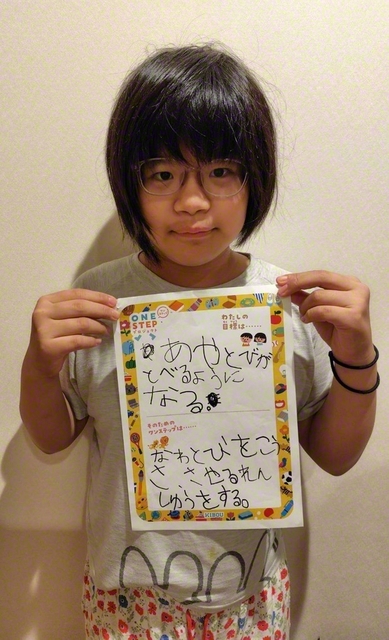 ONE
STEP
プロジェクト
わたしの
目標は……
あやとびが
とべるように
なる。
そのための
ワンステップは……
なわとびをこう
さ、させるれん
しゅうをする。
KIBOU